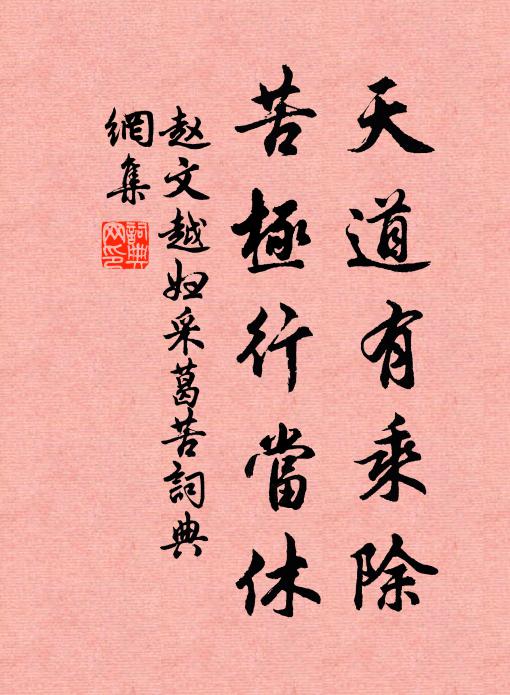 天道有乘除
苦極行當休
赵文越妇采葛苦詞典
網集
詞典
网印